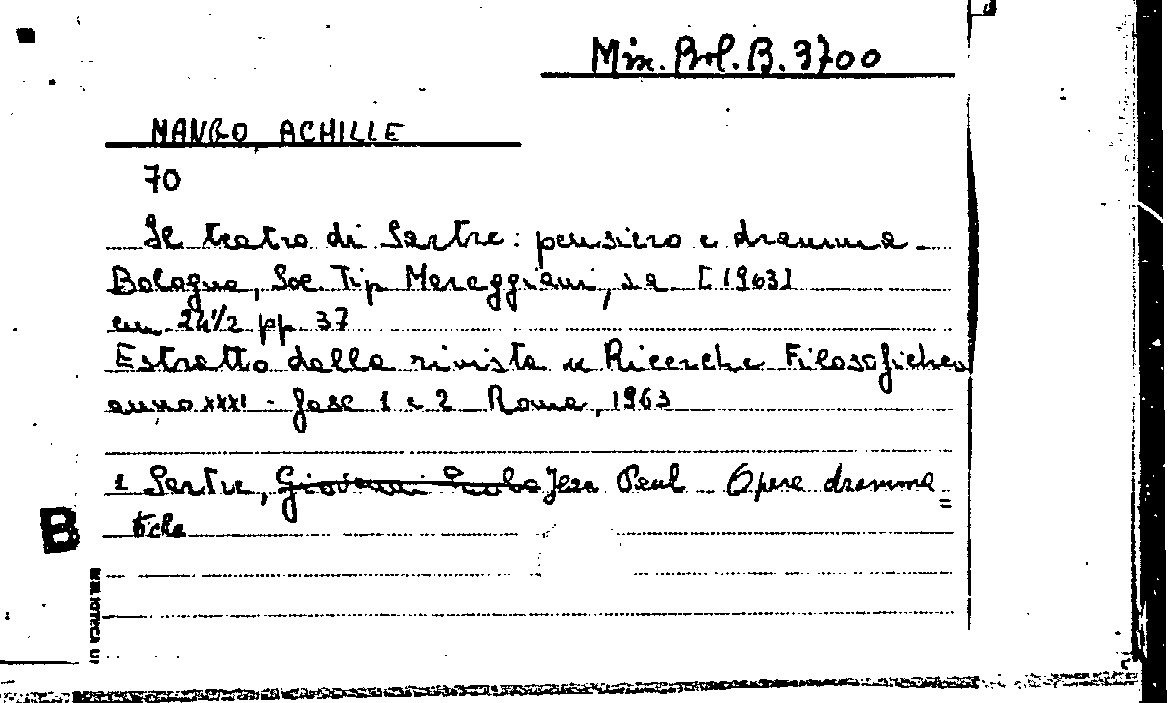 Misc. Bol. B. 3700
MANGO, ACHILLE
70
Il teatro di Sartre: pensiero e dramma
Bologna, Soc. Tip. Mareggiani, s.a. [1963]
cm 24½ pp. 37
Estratto dalla rivista « Ricerche Filosofiche»
anno XXXI - fasc 1 e 2 Roma, 1963
1 Sartre, Giovanni Paolo Jean Paul Opere dramma=
tiche
B
BIBLIOTECA